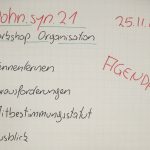 John.syn 21
25.11.
Workshop Organisation
AGENDA
Kennenlernen
Herausforderungen
Mitbestimmungsstatut
Ausblick